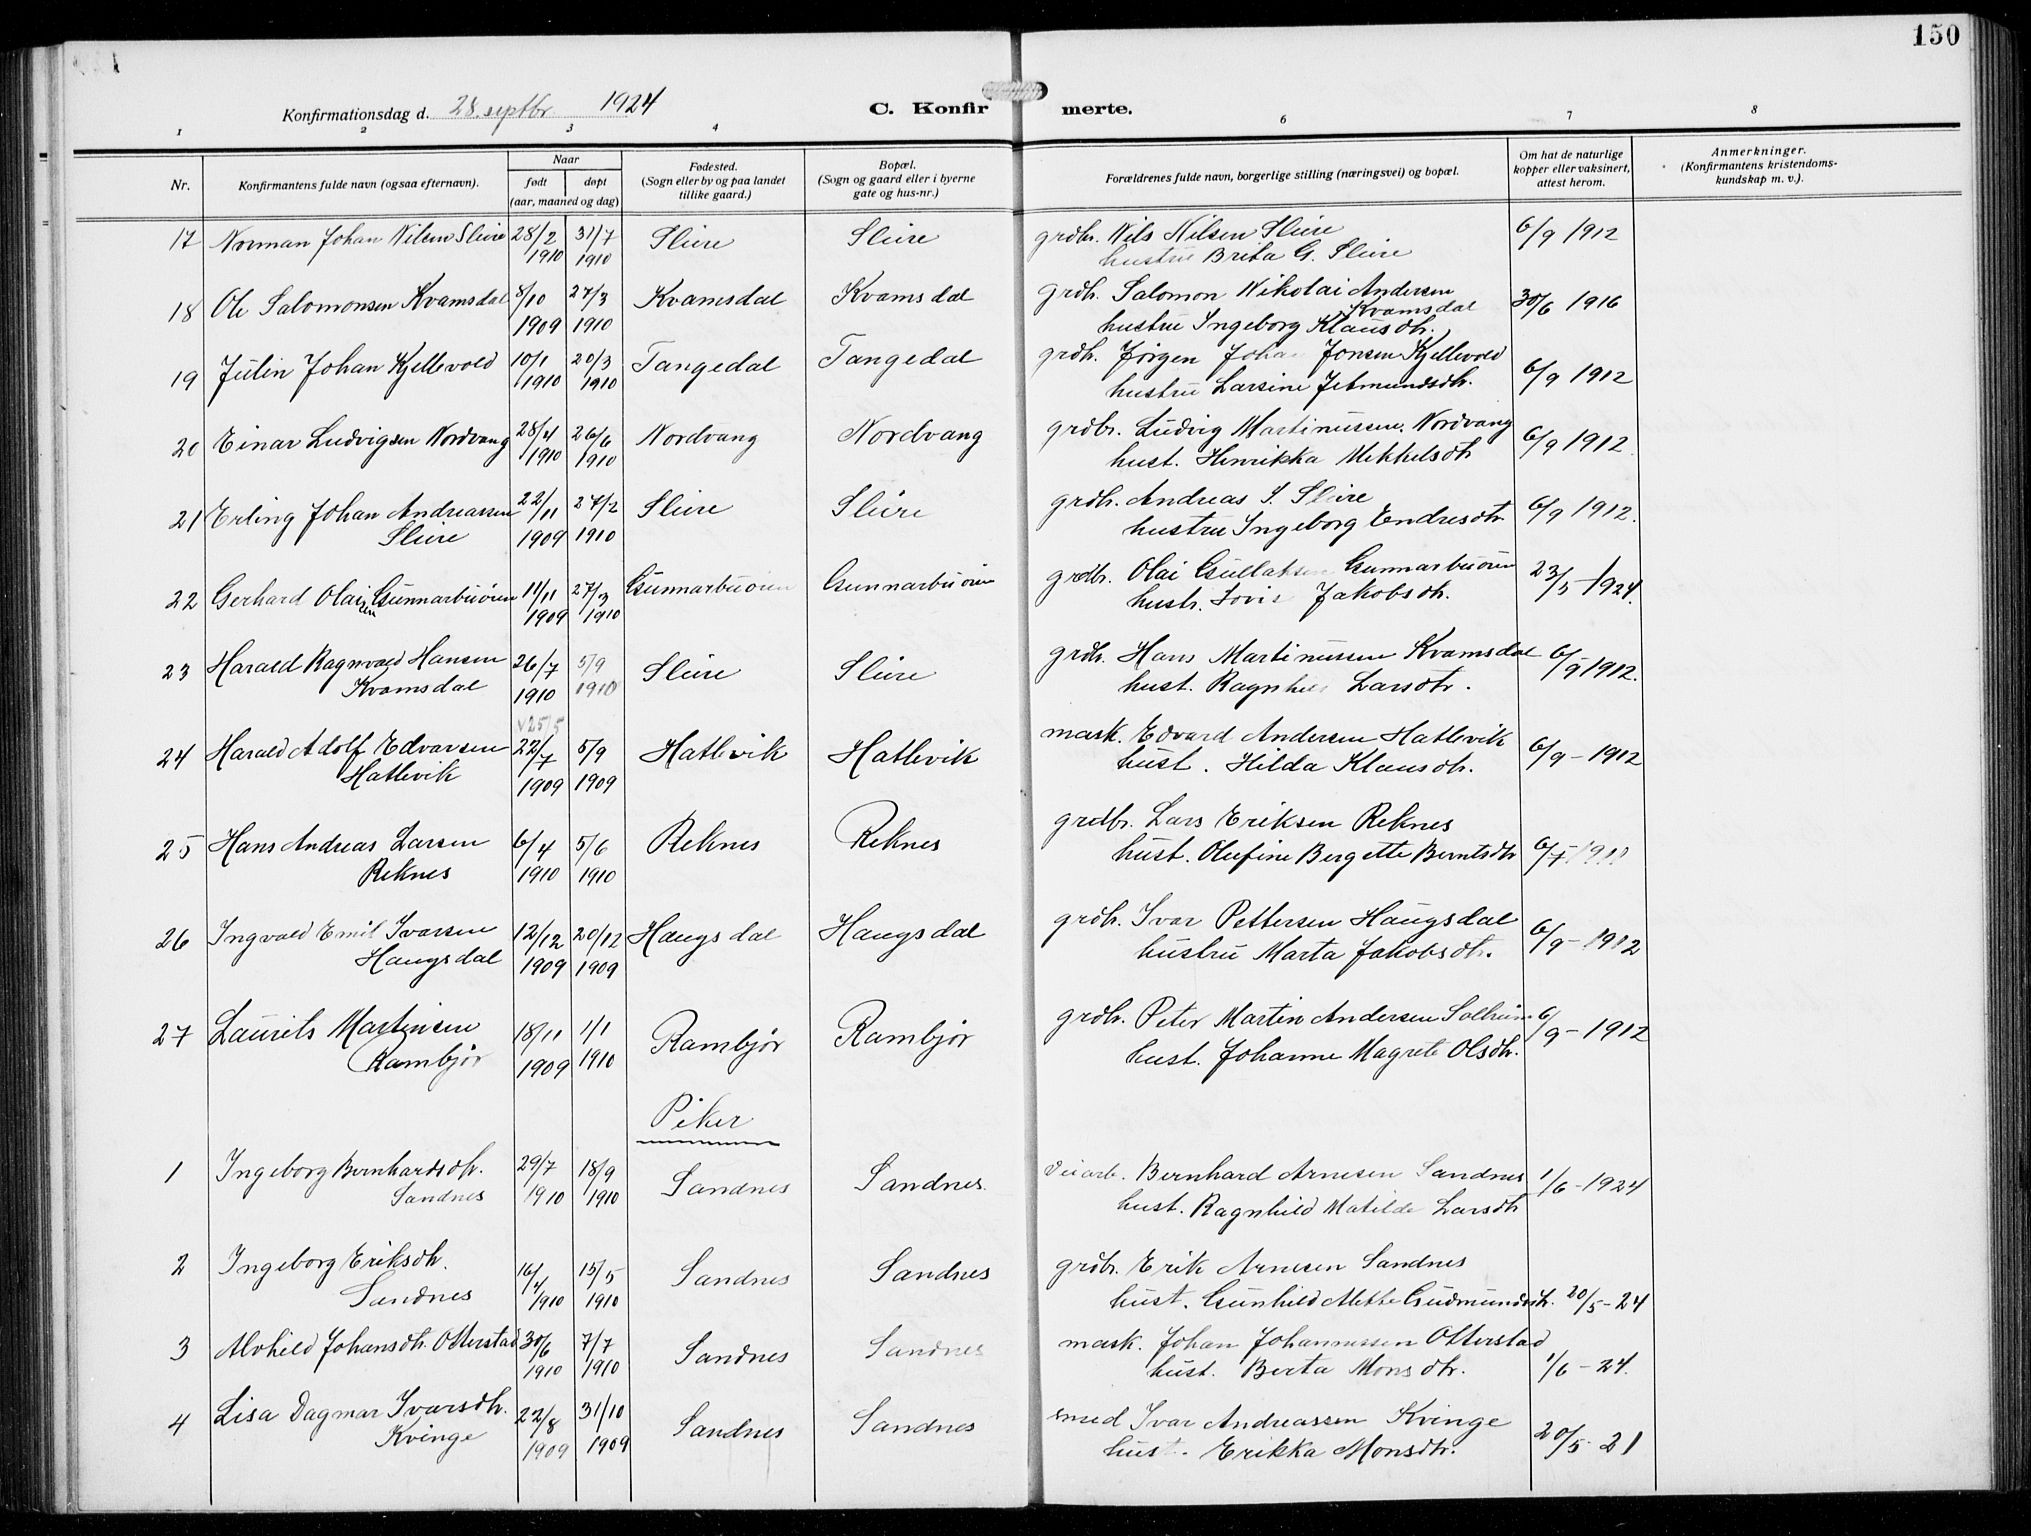 150
Konfirmationsdag d. 28. septbr 1924
C. Konfirmerte.
1 2 3 4 6 7 8
Nr.
Konfirmantens fulde navn (ogsaa efternavn).
Naar
født døpt
(aar, maaned og dag)
Fødested.
(Sogn eller by og paa landet
tillike gaard.)
Bopæl.
(Sogn og gaard eller i byerne
gate og hus-nr.)
Forældrenes fulde navn, borgerlige stilling (næringsvei) og bopæl.
Om hat de naturlige
kopper eller vaksinert,
attest herom.
Anmerkninger.
(Konfirmantens kristendoms-
kundskap m. v.).
17 Norman Johan Nilsen Sleire 28/2 1910 31/7 1910 Sleire Sleire grdbr. Nils Nilsen Sleire 6/9 1912
hustru Brita G. Sleire
18 Ole Salomonsen Kvamsdal 8/10 1909 27/3 1910 Kvamsdal Kvamsdal grdb. Salomon Nikolai Andersen Kvamsdal 30/6 1916
hustru Ingeborg Klausdtr.
19 Julin Johan Kjellevold 10/1 1910 20/3 1910 Tangedal Tangedal grdb. Jørgen Johan Jonsen Kjellevold 6/9 1912
hustru Larsine Jetmundsdtr.
20 Einar Ludvigsen Nordvang 28/4 1910 26/6 1910 Nordvang Nordvang grdbr. Ludvig Martinussen Nordvang 6/9 1912
hust. Henrikka Mikkelsdtr
21 Erling Johan Andreassen Sleire 22/11 1909 27/2 1910 Sleire Sleire grdb. Andreas I. Sleire 6/9 1912.
hustru Ingeborg Endresdtr
22 Gerhard Olaisen Gunnarbuøien 11/11 1909 27/3 1910 Gunnarbuøien Gunnarbuøien grdbr. Olai Gullaksen Gunnarbuøien 23/5-1924.
hustr. Jakobsdtr.
23 Harald Ragnvald Hansen Kvamsdal 26/7 1910 5/9 1910 Sleire Sleire grdb. Hans Martinussen Kvamsdal 6/9 1912.
hust. Ragnhild Larsdtr.
24 Harald Adolf Edvarsen Hatlevik 22/7 1909 5/9 1909 Hatlevik Hatlevik mask. Edvard Andersen Hatlevik 6/9-1912
hust. Hilda Klausdtr.
25 Hans Andreas Larsen Reknes 6/4 1910 5/6 1910 Reknes Reknes grdbr. Lars Eriksen Reknes
hust. Olufine Bergette Berntsdtr
26 Ingvald Emil Ivarsen Haugsdal 12/12 1909 20/12 1909 Haugsdal Haugsdal grdb. Ivar Pettersen Haugsdal 6/9-1912
hustru Marta Jakobsdtr.
27 Laurits Martinsen Rambjør 18/11 1909 1/1 1910 Rambjør Rambjør grdb. Peter Martin Andersen Solheim 6/9-1912
hust. Johanne Magrete Olsdtr.
Piker
1 Ingeborg Bernhardsdtr. Sandnes 29/7 1910 18/9 1910 Sandnes Sandnes. veiarb. Bernhard Arnesen Sandnes 1/6-1924
hust. Ragnhild Matilde Larsdtr
2 Ingeborg Eriksdtr. Sandnes 16/4 1910 15/5 1910 Sandnes Sandnes grdbr. Erik Arnesen Sandnes
hust. Gunhild Mette Gudmundsdtr. 20/5-24
3 Alvhild Johansdtr. Otterstad 30/6 1910 7/7 1910 Sandnes Sandnes mask. Johan Johannessen Otterstad
hust. Berta Monsdtr. 1/6-24.
4 Lisa Dagmar Ivarsdtr. Kvinge 22/8 1909 31/10 1909 Sandnes Sandnes smed Ivar Andreassen Kvinge
hust. Erikka Monsdtr. 20/5-21